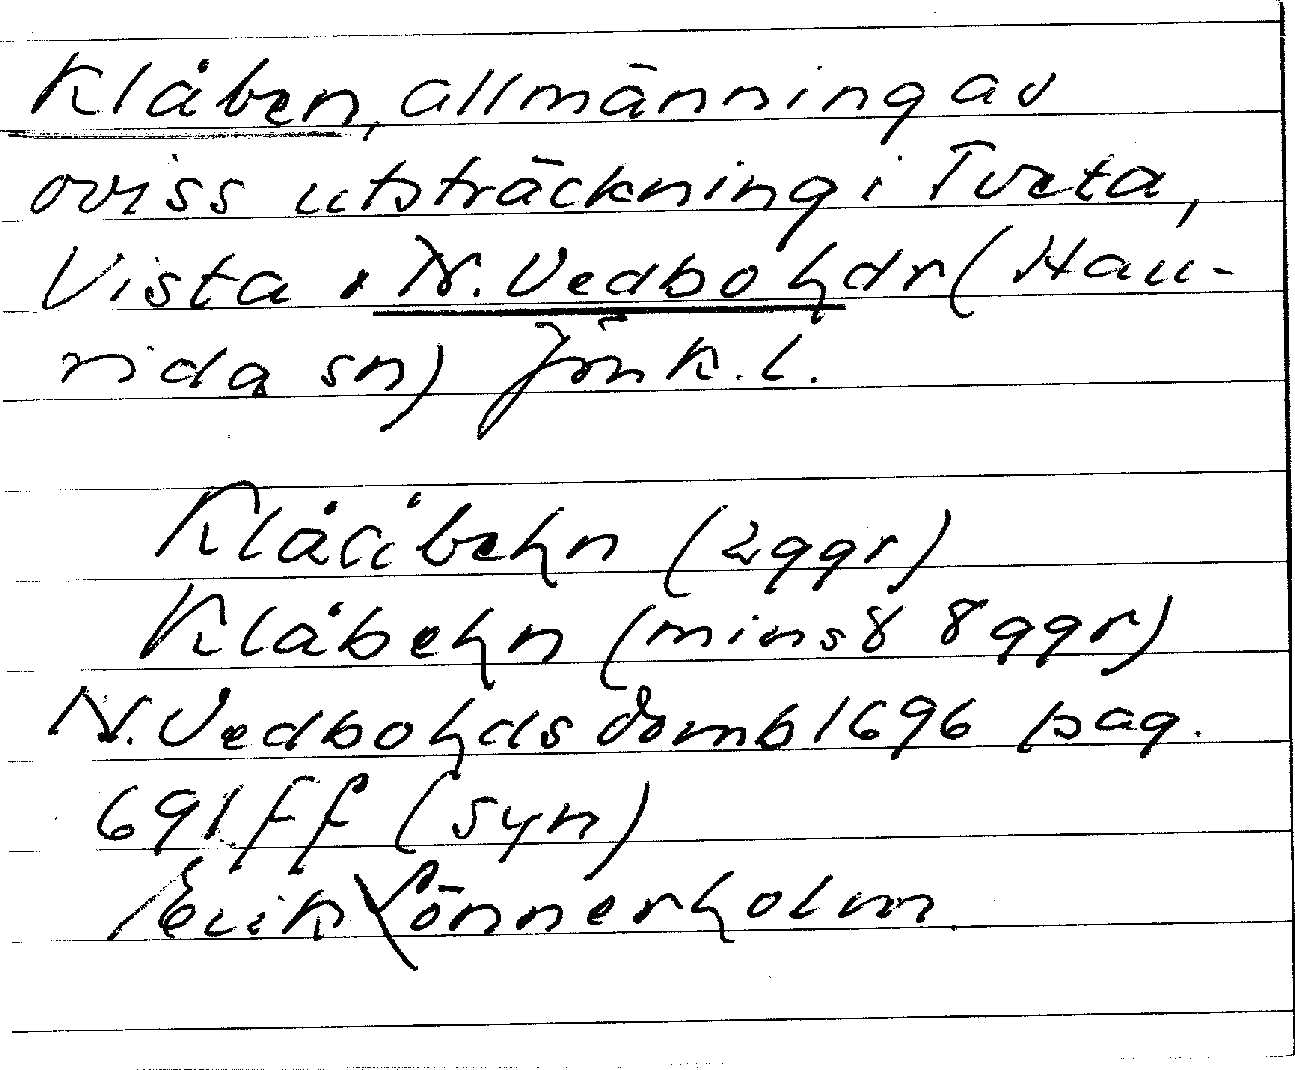 Klåben, allmänning av
oviss utsträckning i Tveta,
Vista o N. Vedbo hdr (Hau-
rida sn) Jönk. l.
Klåübehn (2 ggr)
Klåbehn (minst 8 ggr)
N. Vedbo hds domb 1696 pag.
691 ff (syn)
Erik Lönnerholm.